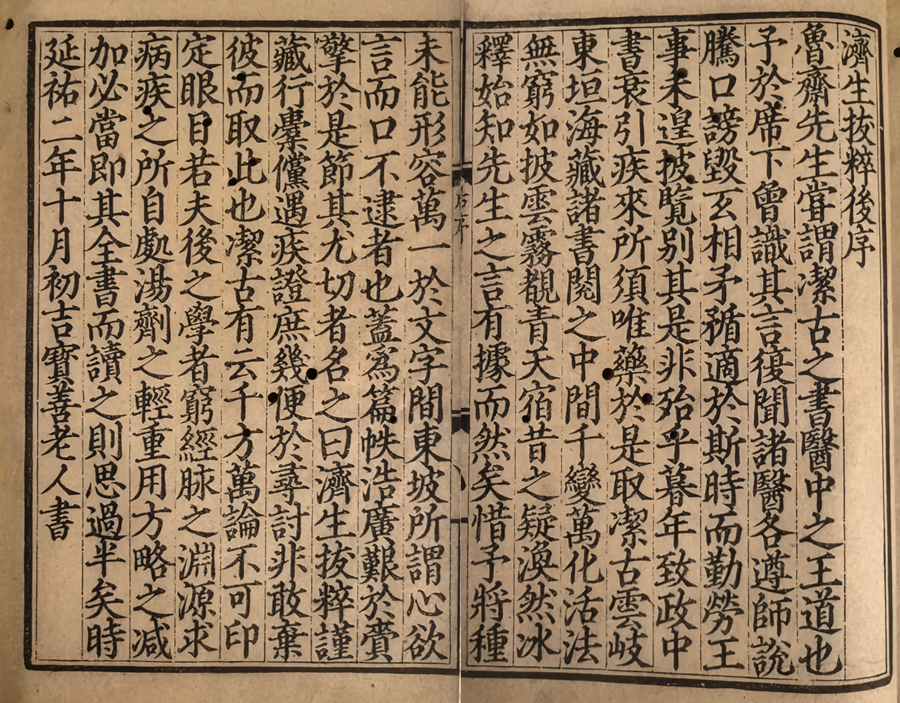 濟生拔粹後序
魯齋先生甞謂潔古之書醫中之王道也
予於席下曾識其言復聞諸醫各遵師說
騰口謗毀互相矛楯適於斯時而勤勞王
事未遑披覽别其是非殆乎暮年致政中
書衰引疾來所須唯藥於是取潔古雲岐
東垣海藏諸書閱之中間千變萬化活法
無窮如披雲霧覩青天宿昔之疑渙然冰
釋始知先生之言有據而然矣惜予將種
后序
未能形容萬一於文字間東坡所謂心欲
言而口不逮者也蓋爲篇帙浩廣艱於賫
擎於是節其尤切者名之曰濟生拔粹謹
藏行橐儻遇疾證庶幾便於尋討非敢棄
彼而取此也潔古有云千方萬論不可印
定眼目若夫後之學者窮經脉之淵源求
病疾之所自處湯劑之輕重用方略之减
加必當即其全書而讀之則思過半矣時
延祐二年十月初吉寶善老人書